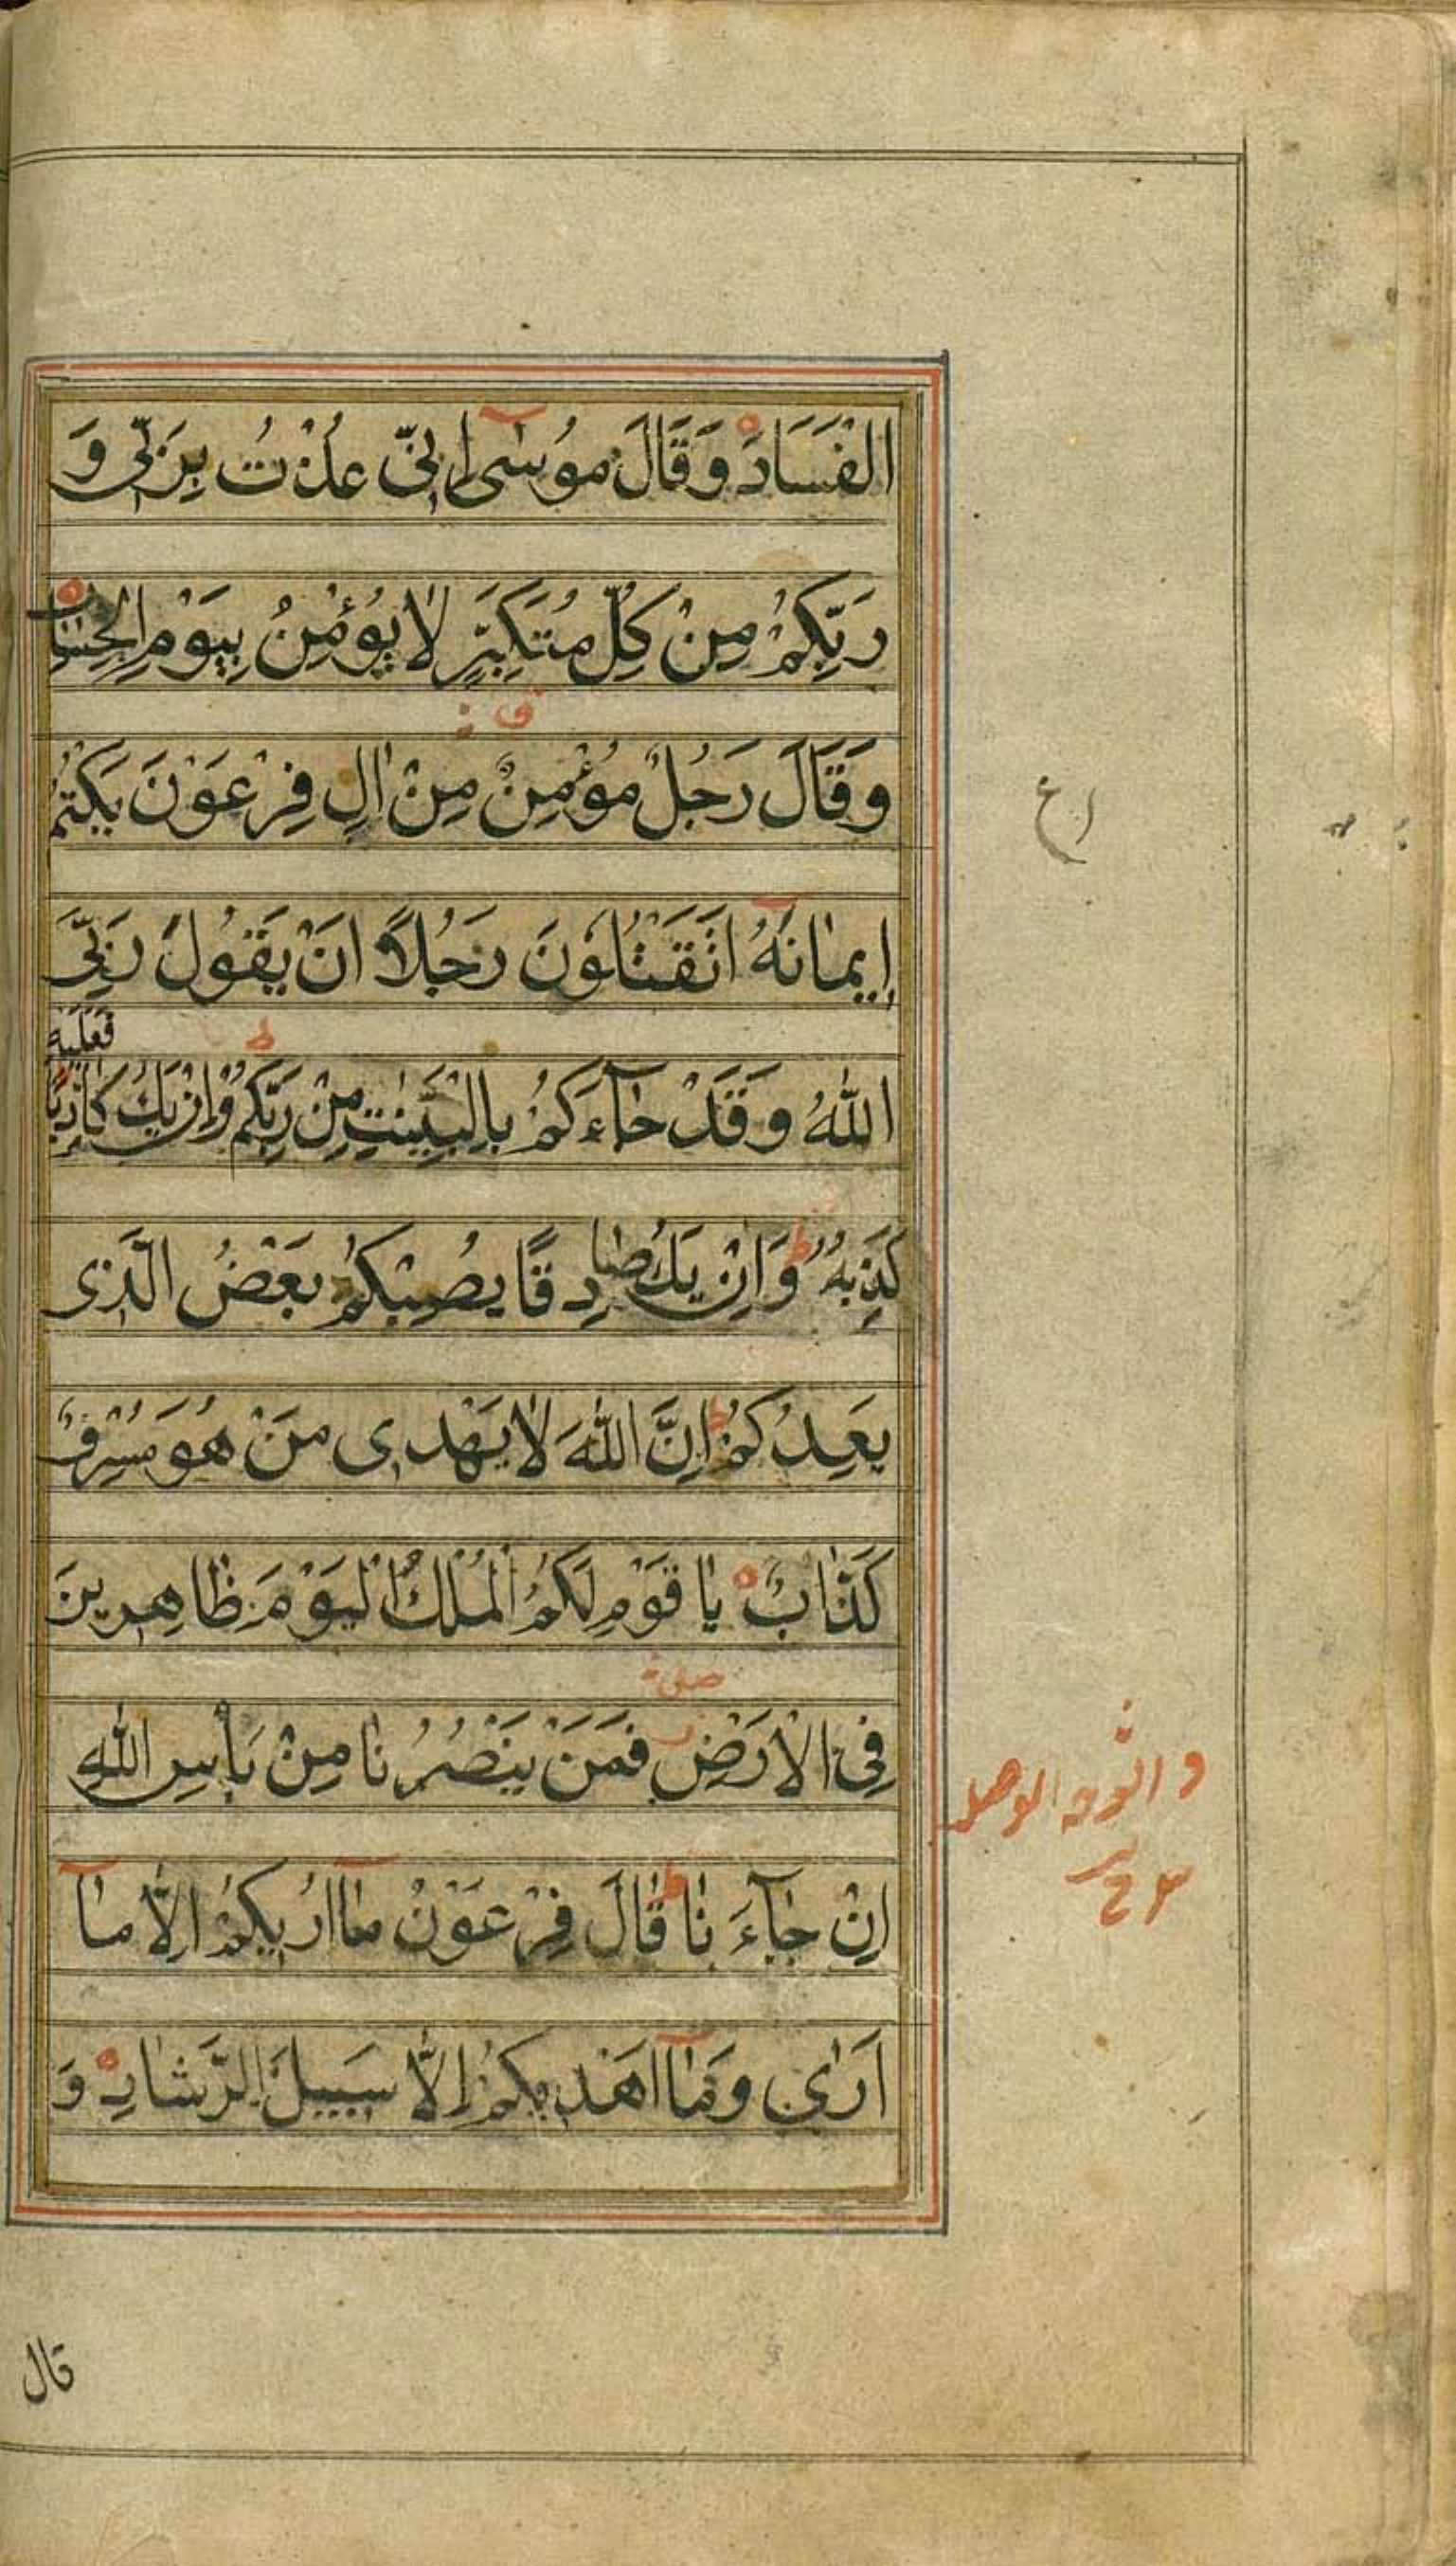 الفَسَادَ وَقَالَ مُوسٰۤى اِنِّى عُذْتُ بِرَبِّى وَ
رَبِّكُمْ مِنْ كُلِّ مُتَكَبِّرٍ لَا يُؤْمِنُ بِيَوْمِ الْحِسٰابِ
قف
وَقَالَ رَجُلٌ مُؤْمِنٌ مِنْ اٰلِ فِرْعَوْنَ يَكْتُمُ
اع
اِيمٰانَهُ اَتَقْتُلُوْنَ رَجُلًا اَنْ يَقُوْلَ رَبِّىَ
فعليه
اللّٰهُ وَقَدْ جٰآءَكُمْ بِالْبَيِّنٰتِ مِنْ رَبِّكُمْ ط وَاِنْ يَكُ كٰاذِبًا
كَذِبُهُ ط وَاِنْ يَكُ صٰادِقًا يُصِبْكُمْ بَعْضُ الَّذِى
يَعِدُكُمْ ط اِنَّ اللّٰهَ لٰا يَهْدِى مَنْ هُوَ مُسْرِفٌ
كَذّٰابٌ يٰا قَوْمِ لَكُمُ الْمُلْكُ الْيَوْمَ ظٰاهِرِينَ
صلى
فِى الْاَرْضِ فَمَنْ يَنْصُرُنٰا مِنْ بَأْسِ اللّٰهِ
اِنْ جٰآءَنٰا ط قٰالَ فِرْعَوْنُ مٰۤا اُرِيكُمْ اِلّٰا مٰۤا
اَرٰى وَمٰۤا اَهْدِيكُمْ اِلّٰا سَبِيلَ الرَّشٰادِ وَ
قال